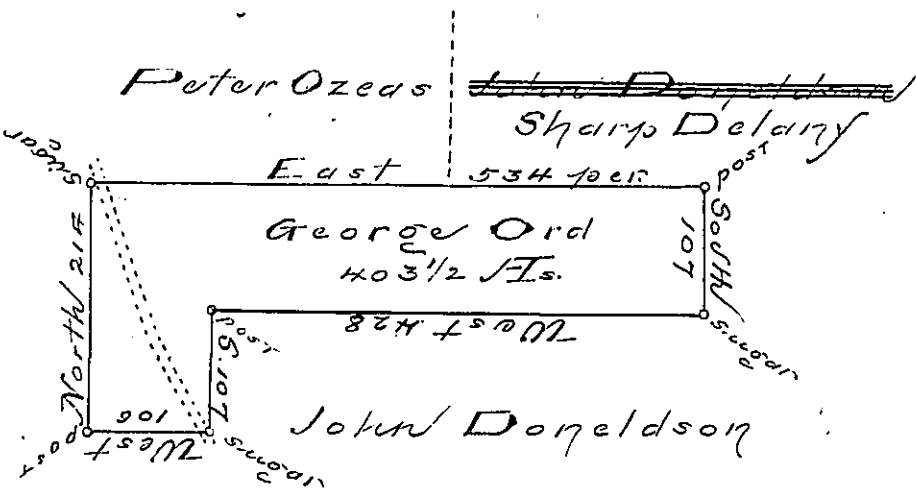 Peter Ozeas
John Doneldson
Sharp Delany
S.ugar
East 534 per.
post
George Ord
403 1/2 As.
South 107
North 214
post
West 428
S.ugar
S. 107
West 106
post
S.ugar
John Doneldson